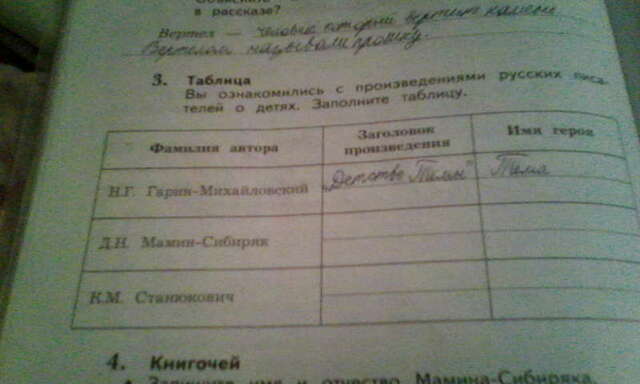 в рассказе?
Вертел — человек который вертит камень
Вертелом называли прошку.
3. Таблица
Вы ознакомились с произведениями русских писа-
телей о детях. Заполните таблицу.
Фамилия автора
Заголовок произведения
Имя героя
Н.Г. Гарин-Михайловский
„Детство Тёмы"
Тёма
Д.Н. Мамин-Сибиряк
К.М. Станюкович
4. Книгочей
имя и отчество Мамина-Сибиряка,